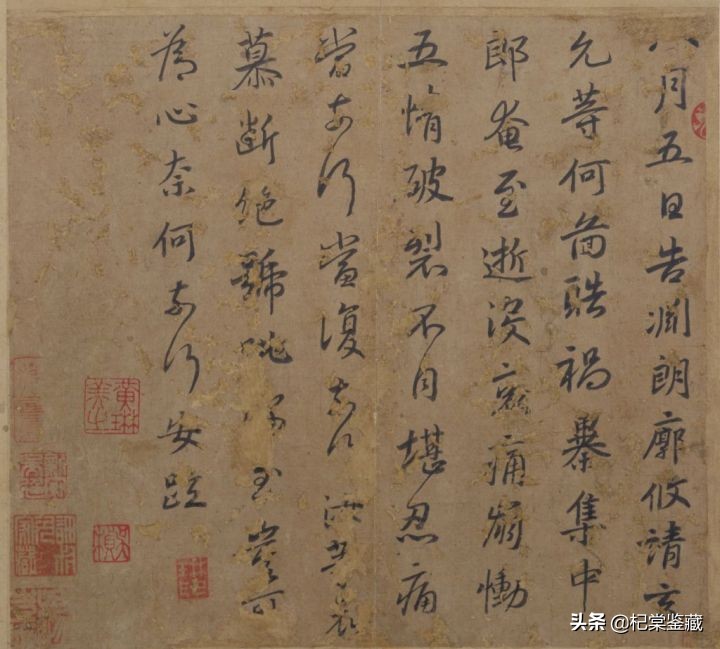 八月五日告淵朗廓攸靖玄
允等何圖酷禍暴集中
郎奄至逝沒哀痛崩慟
五情破裂不自堪忍痛
當奈何當復奈何汝等哀
慕斷絕號咷深至豈可
為心奈何奈何安疏
黃琳美之
头条 @杞棠鉴藏